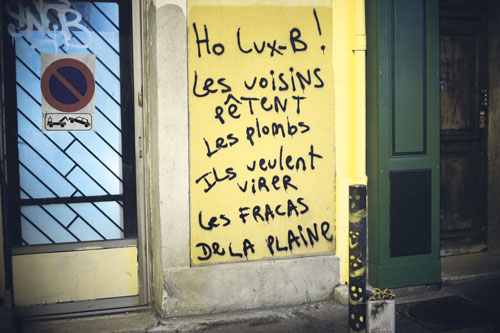 Ho Lux-B !
Les voisins
pêtent
Les plombs
Ils veulent
virer
Les FRACAS
DE LA PLAINE